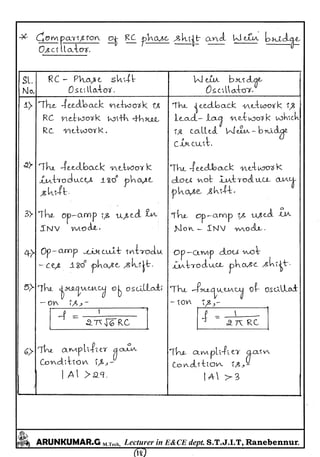 * Comparison of RC phase shift and Wein bridge
Oscillator.
Sl. No. RC - Phase shift Oscillator. Wein bridge Oscillator.
1) The feedback network is
RC network with three
RC network.
The feedback network is
lead-lag network which
is called Wein-bridge
circuit.
2) The feedback network
introduces 180° phase
shift.
The feedback network
does not introduce any
phase shift.
3) The op-amp is used in
INV mode.
The op-amp is used in
Non - INV mode.
4) Op-amp circuit introdu
-ces 180° phase shift.
op-amp does not
introduce phase shift.
5) The frequency of oscillati
-on is,-
f = 1 / 2π√6 RC
The frequency of oscillat
-ion is,-
f = 1 / 2π RC
6) The amplifier gain
Condition is,-
|A| > 29.
The amplifier gain
Condition is,-
|A| > 3
ARUNKUMAR.G M.Tech, Lecturer in E&CE dept. S.T.J.I.T, Ranebennur.
(18)